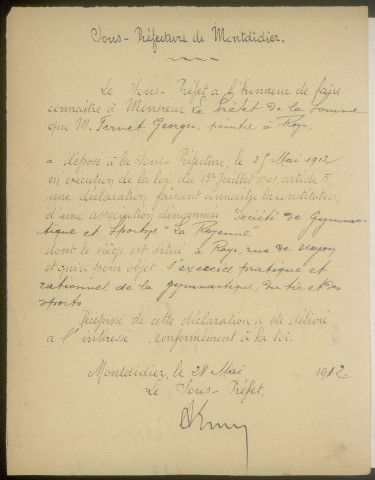 Sous-Préfecture de Montdidier.
Le Sous-Préfet a l'honneur de faire
connaître à Monsieur Le Préfet de la Somme
que M. Fernet Georges, peintre à Roye,
a déposé à la Sous-Préfecture, le 25 Mai 1912
en exécution de la loi du 1er Juillet 1901, article 5,
une déclaration faisant connaître la constitution
d'une association dénommée Société de Gymnas-
tique et Sportive "La Royenne"
dont le siège est situé à Roye, rue de Noyon
et qui a pour objet l'exercice pratique et
rationnel de la gymnastique, du tir et des
sports
Récépissé de cette déclaration a été délivré
à l'intéressé, conformément à la loi.
Montdidier, le 28 Mai 1912
Le Sous-Préfet,